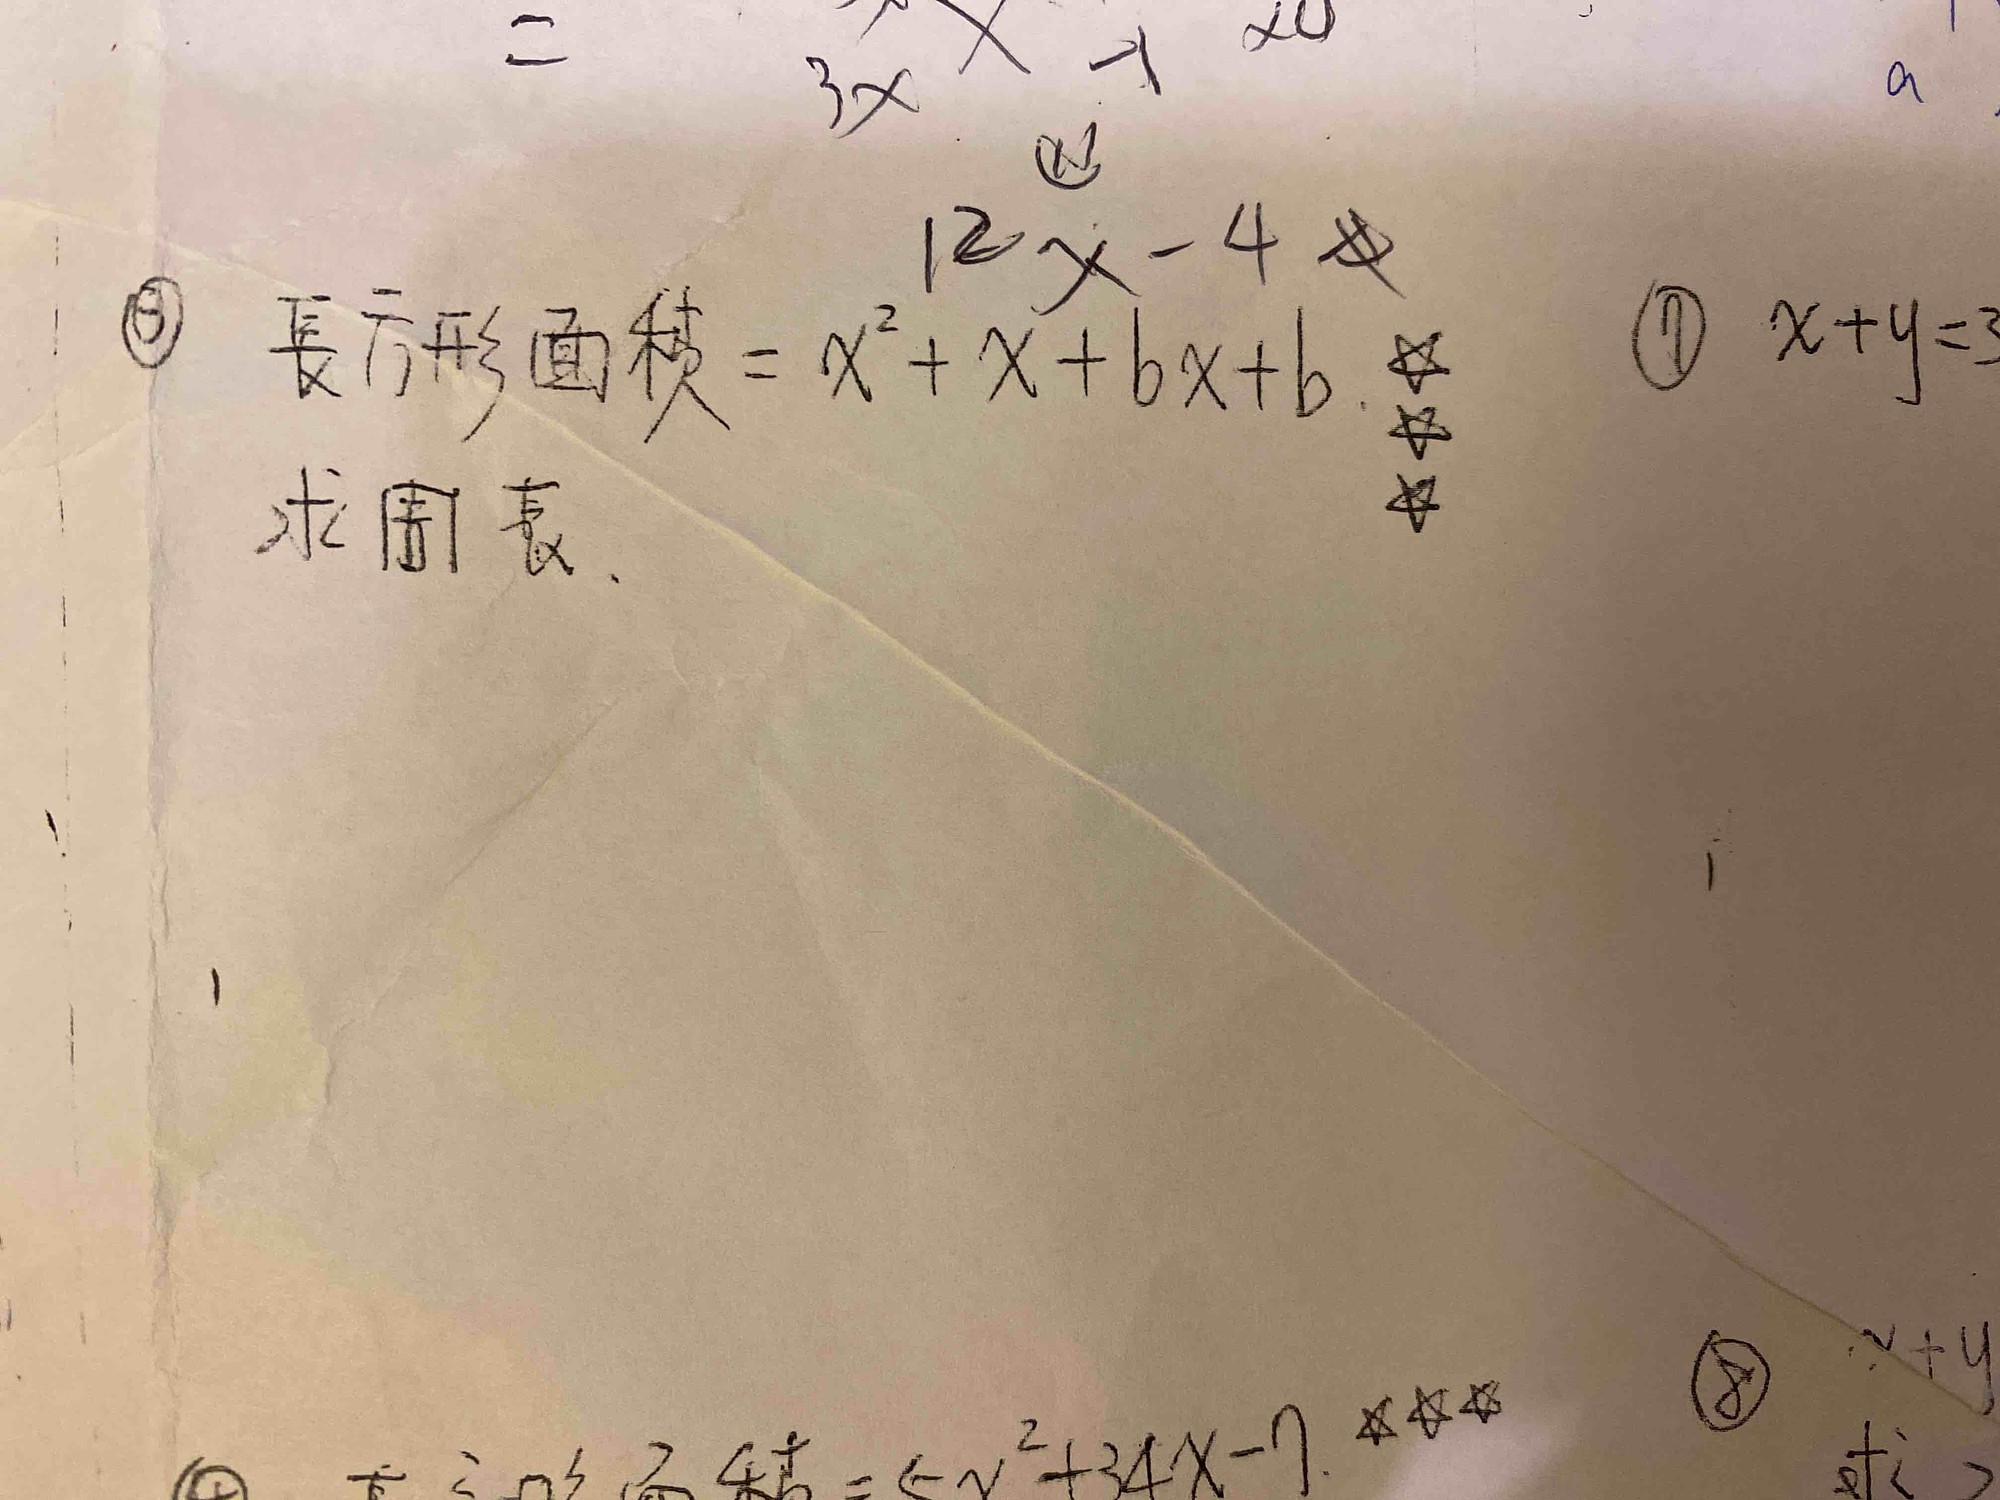 =
3x -1
12x-4
③ 長方形面積=x²+x+6x+6.
求周長.
⑦ x+y=3
⑧ x+y
求
④ 長方形面積=5x²+34x-7.
a